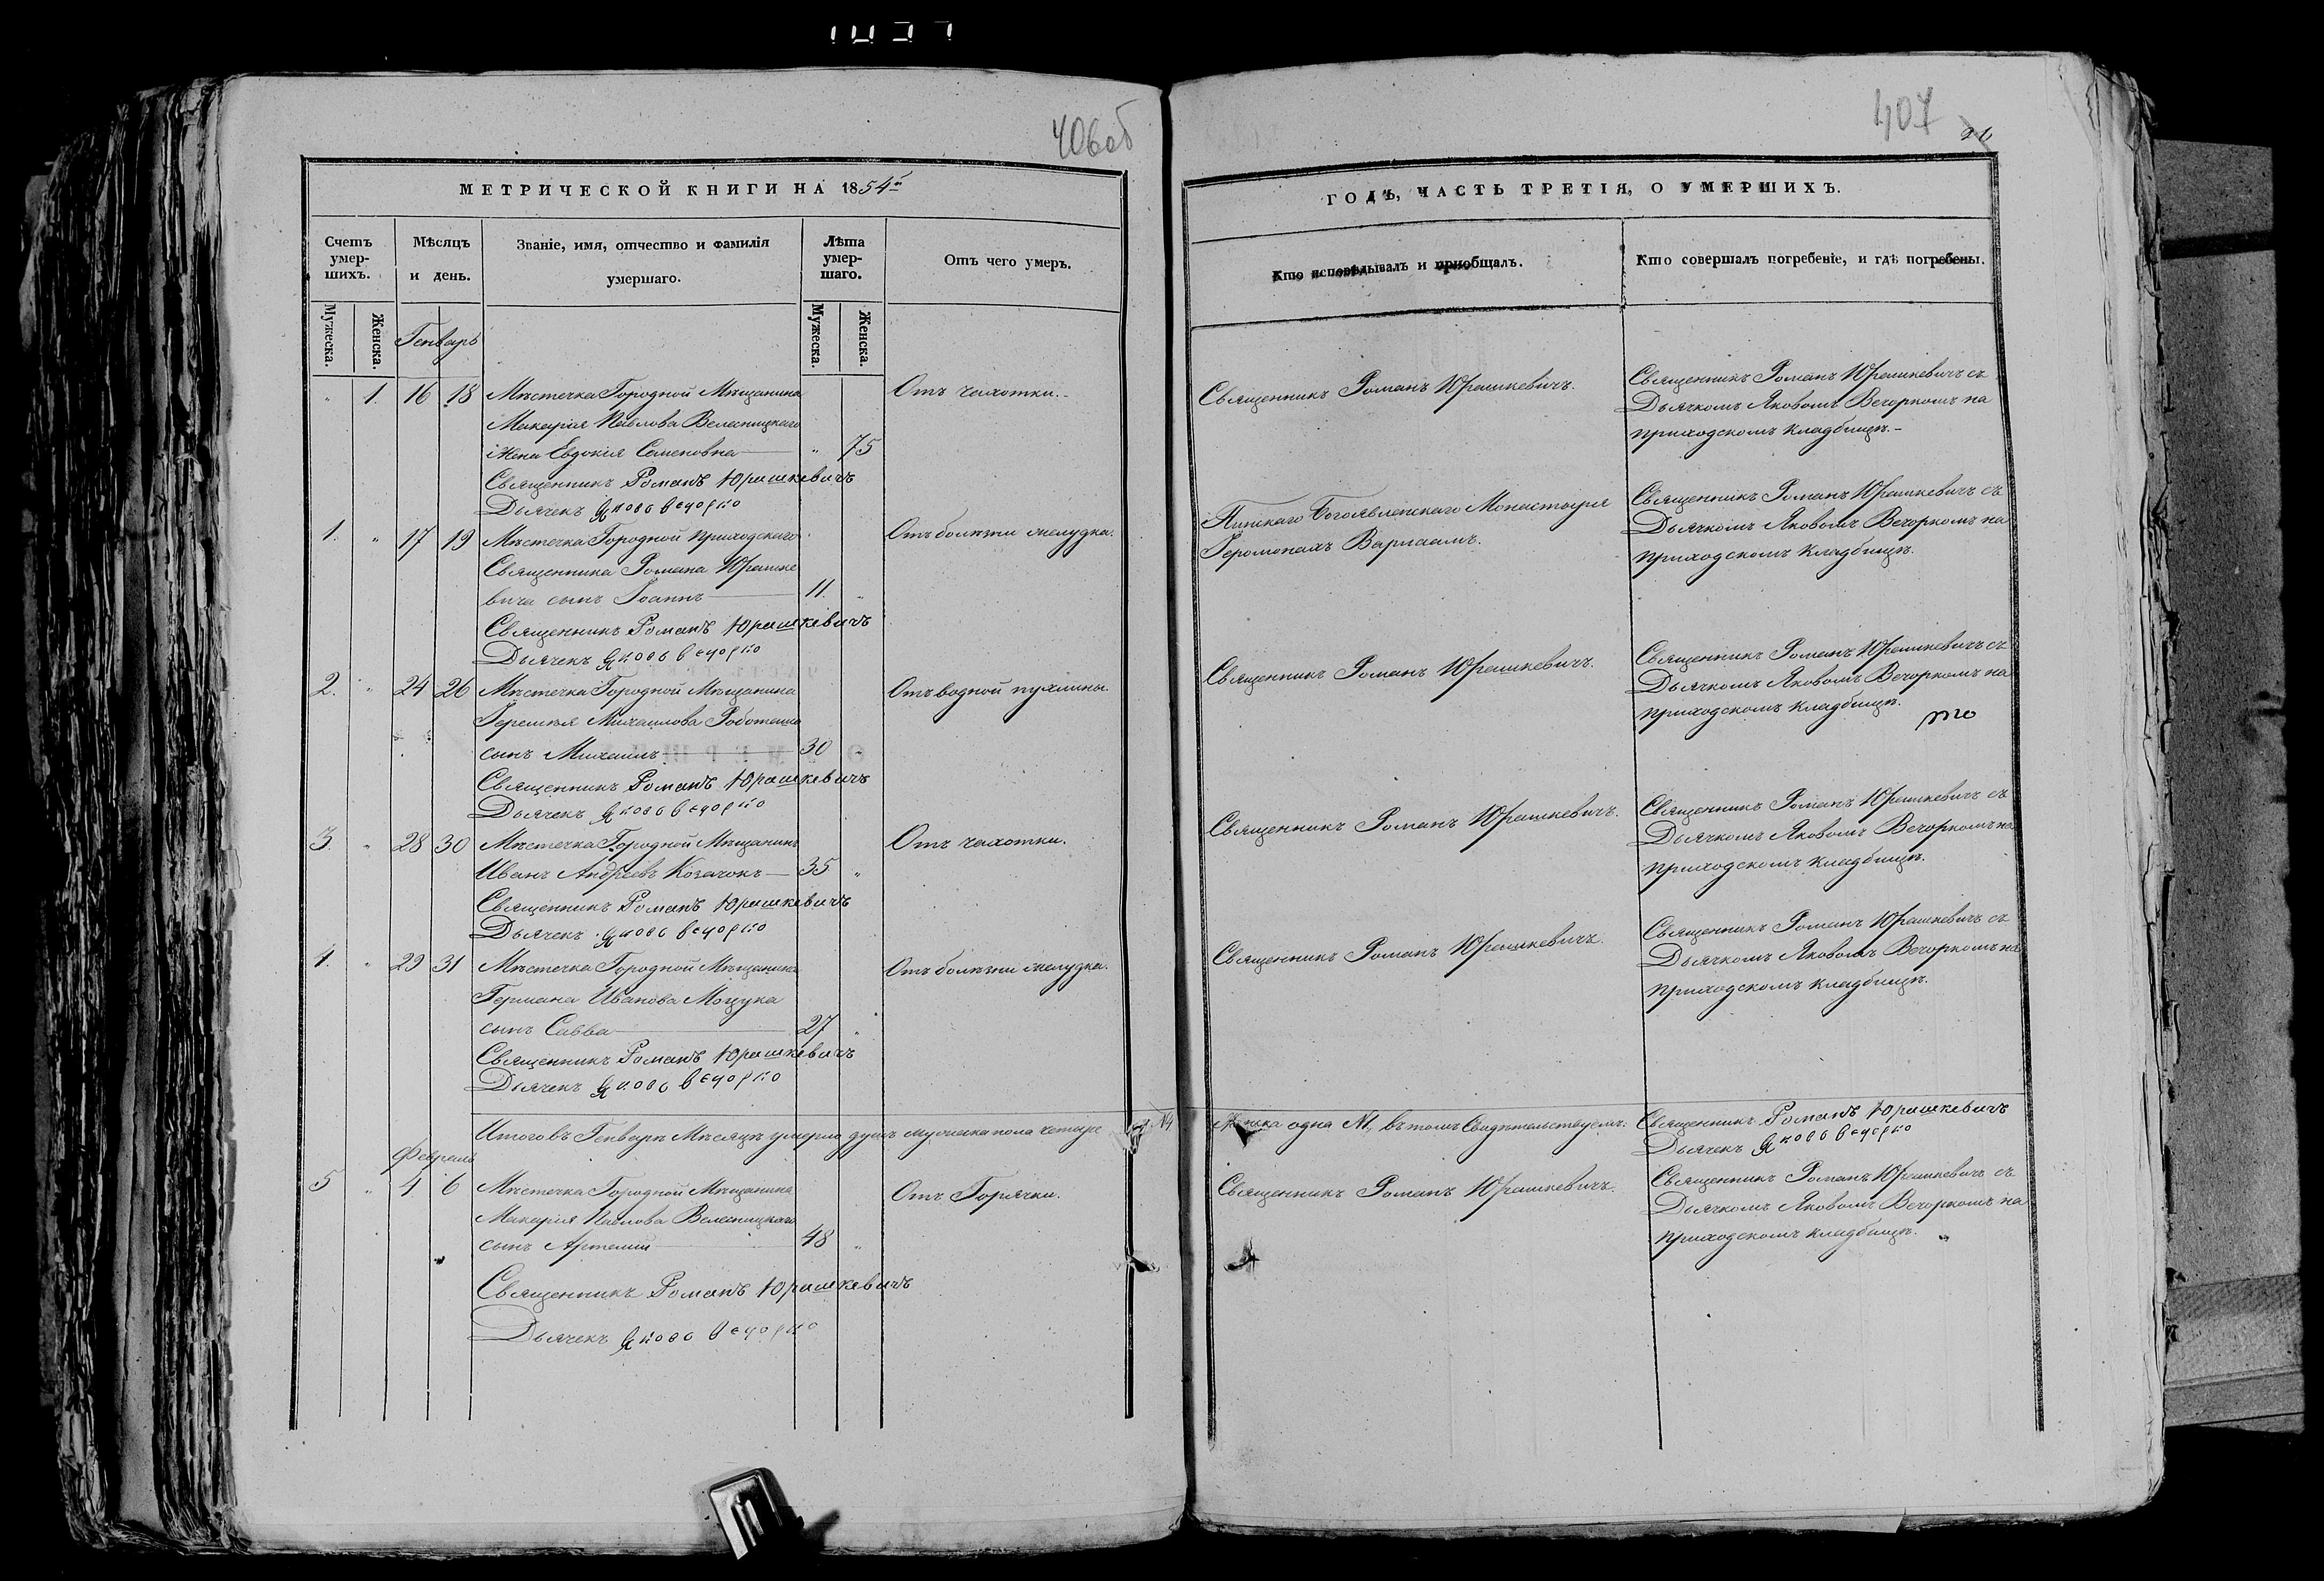 406об
МЕТРИЧЕСКОЙ КНИГИ НА 1854й
Счетъ умер-шихъ.
Мѣсяцъ и день.
Званіе, имя, отчество и фамилія умершаго.
Лѣта умер-шаго.
Отъ чего умеръ.
Мужеска.
Женска.
Генварь
Мужеска.
Женска.
" 1. 16 18 Мѣстечка Городной Мѣщанина Отъ чахотки.-
Макарія Павлова Велесницкаго
жена Евдокія Семеновна " 75
Священникъ Романъ Юрашкевичъ
Дьячекъ Яковъ Вечорко
1. " 17 19 Мѣстечка Городной приходскаго Отъ болѣзни желудка.
Священника Романа Юрашке
вича сынъ Іоаннъ 11. "
Священникъ Романъ Юрашкевичъ
Дьячекъ Яковъ Вечорко
2. " 24 26 Мѣстечка Городной Мѣщанина Отъ водной пухлины.
Іеремѣя Михаилова
сынъ Михаилъ 30
Священникъ Романъ Юрашкевичъ
Дьячекъ Яковъ Вечорко
3. " 28 30 Мѣстечка Городной Мѣщанинъ Отъ чахотки.
Иванъ Андреевъ Козачокъ 35 "
Священникъ Романъ Юрашкевичъ
Дьячекъ Яковъ Вечорко
4. " 29 31 Мѣстечка Городной Мѣщанина Отъ болѣзни желудка.
Германа Иванова Моцука
сынъ Савва 27 "
Священникъ Романъ Юрашкевичъ
Дьячекъ Яковъ Вечорко
Итого въ Генварѣ Мѣсяцѣ умерло душъ мужеска пола четыре
Февраль
5 " 4 6 Мѣстечка Городной Мѣщанина Отъ Горячки.
Макарія Павлова Велесницкаго
сынъ Артемій 48 "
Священникъ Романъ Юрашкевичъ
Дьячекъ Яковъ Вечорко
407
ГОДЪ, ЧАСТЬ ТРЕТІЯ, О УМЕРШИХЪ.
Кто исповѣдывалъ и пріобщалъ.
Кто совершалъ погребеніе, и гдѣ погребены.
Священникъ Романъ Юрашкевичъ.
Священникъ Романъ Юрашкевичъ съ
Дьячкомъ Яковомъ Вечоркомъ на
приходскомъ кладбищѣ.-
Пинскаго Богоявленскаго Монастыря
Іеромонахъ Варлаамъ.
Священникъ Романъ Юрашкевичъ съ
Дьячкомъ Яковомъ Вечоркомъ на
приходскомъ кладбищѣ.
Священникъ Романъ Юрашкевичъ.
Священникъ Романъ Юрашкевичъ съ
Дьячкомъ Яковомъ Вечоркомъ на
приходскомъ кладбищѣ.
Священникъ Романъ Юрашкевичъ.
Священникъ Романъ Юрашкевичъ съ
Дьячкомъ Яковомъ Вечоркомъ на
приходскомъ кладбищѣ.
Священникъ Романъ Юрашкевичъ.
Священникъ Романъ Юрашкевичъ съ
Дьячкомъ Яковомъ Вечоркомъ на
приходскомъ кладбищѣ.
одна въ томъ Свидѣтельствуемъ:
Священникъ Романъ Юрашкевичъ
Дьячекъ Яковъ Вечорко
Священникъ Романъ Юрашкевичъ.
Священникъ Романъ Юрашкевичъ съ
Дьячкомъ Яковомъ Вечоркомъ на
приходскомъ кладбищѣ.